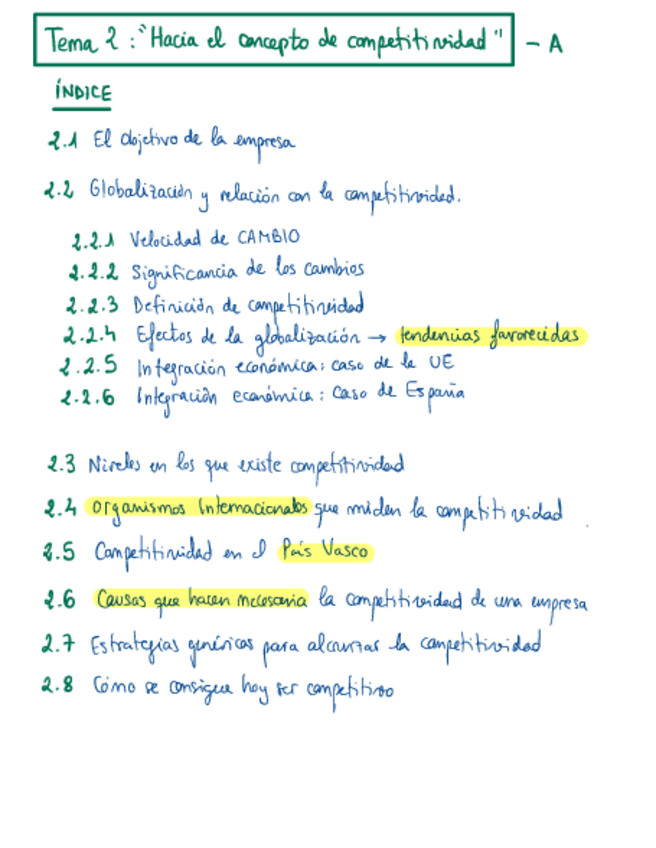 Tema 2 : "Hacia el concepto de competitividad" - A
ÍNDICE
2.1 El objetivo de la empresa
2.2 Globalización y relación con la competitividad.
2.2.1 Velocidad de CAMBIO
2.2.2 Significancia de los cambios
2.2.3 Definición de competitividad
2.2.4 Efectos de la globalización → tendencias favorecidas
2.2.5 Integración económica: caso de la UE
2.2.6 Integración económica: Caso de España
2.3 Niveles en los que existe competitividad
2.4 Organismos Internacionales que miden la competitividad
2.5 Competitividad en el País Vasco
2.6 Causas que hacen necesaria la competitividad de una empresa
2.7 Estrategias genéricas para alcanzar la competitividad
2.8 Cómo se consigue hoy ser competitivo